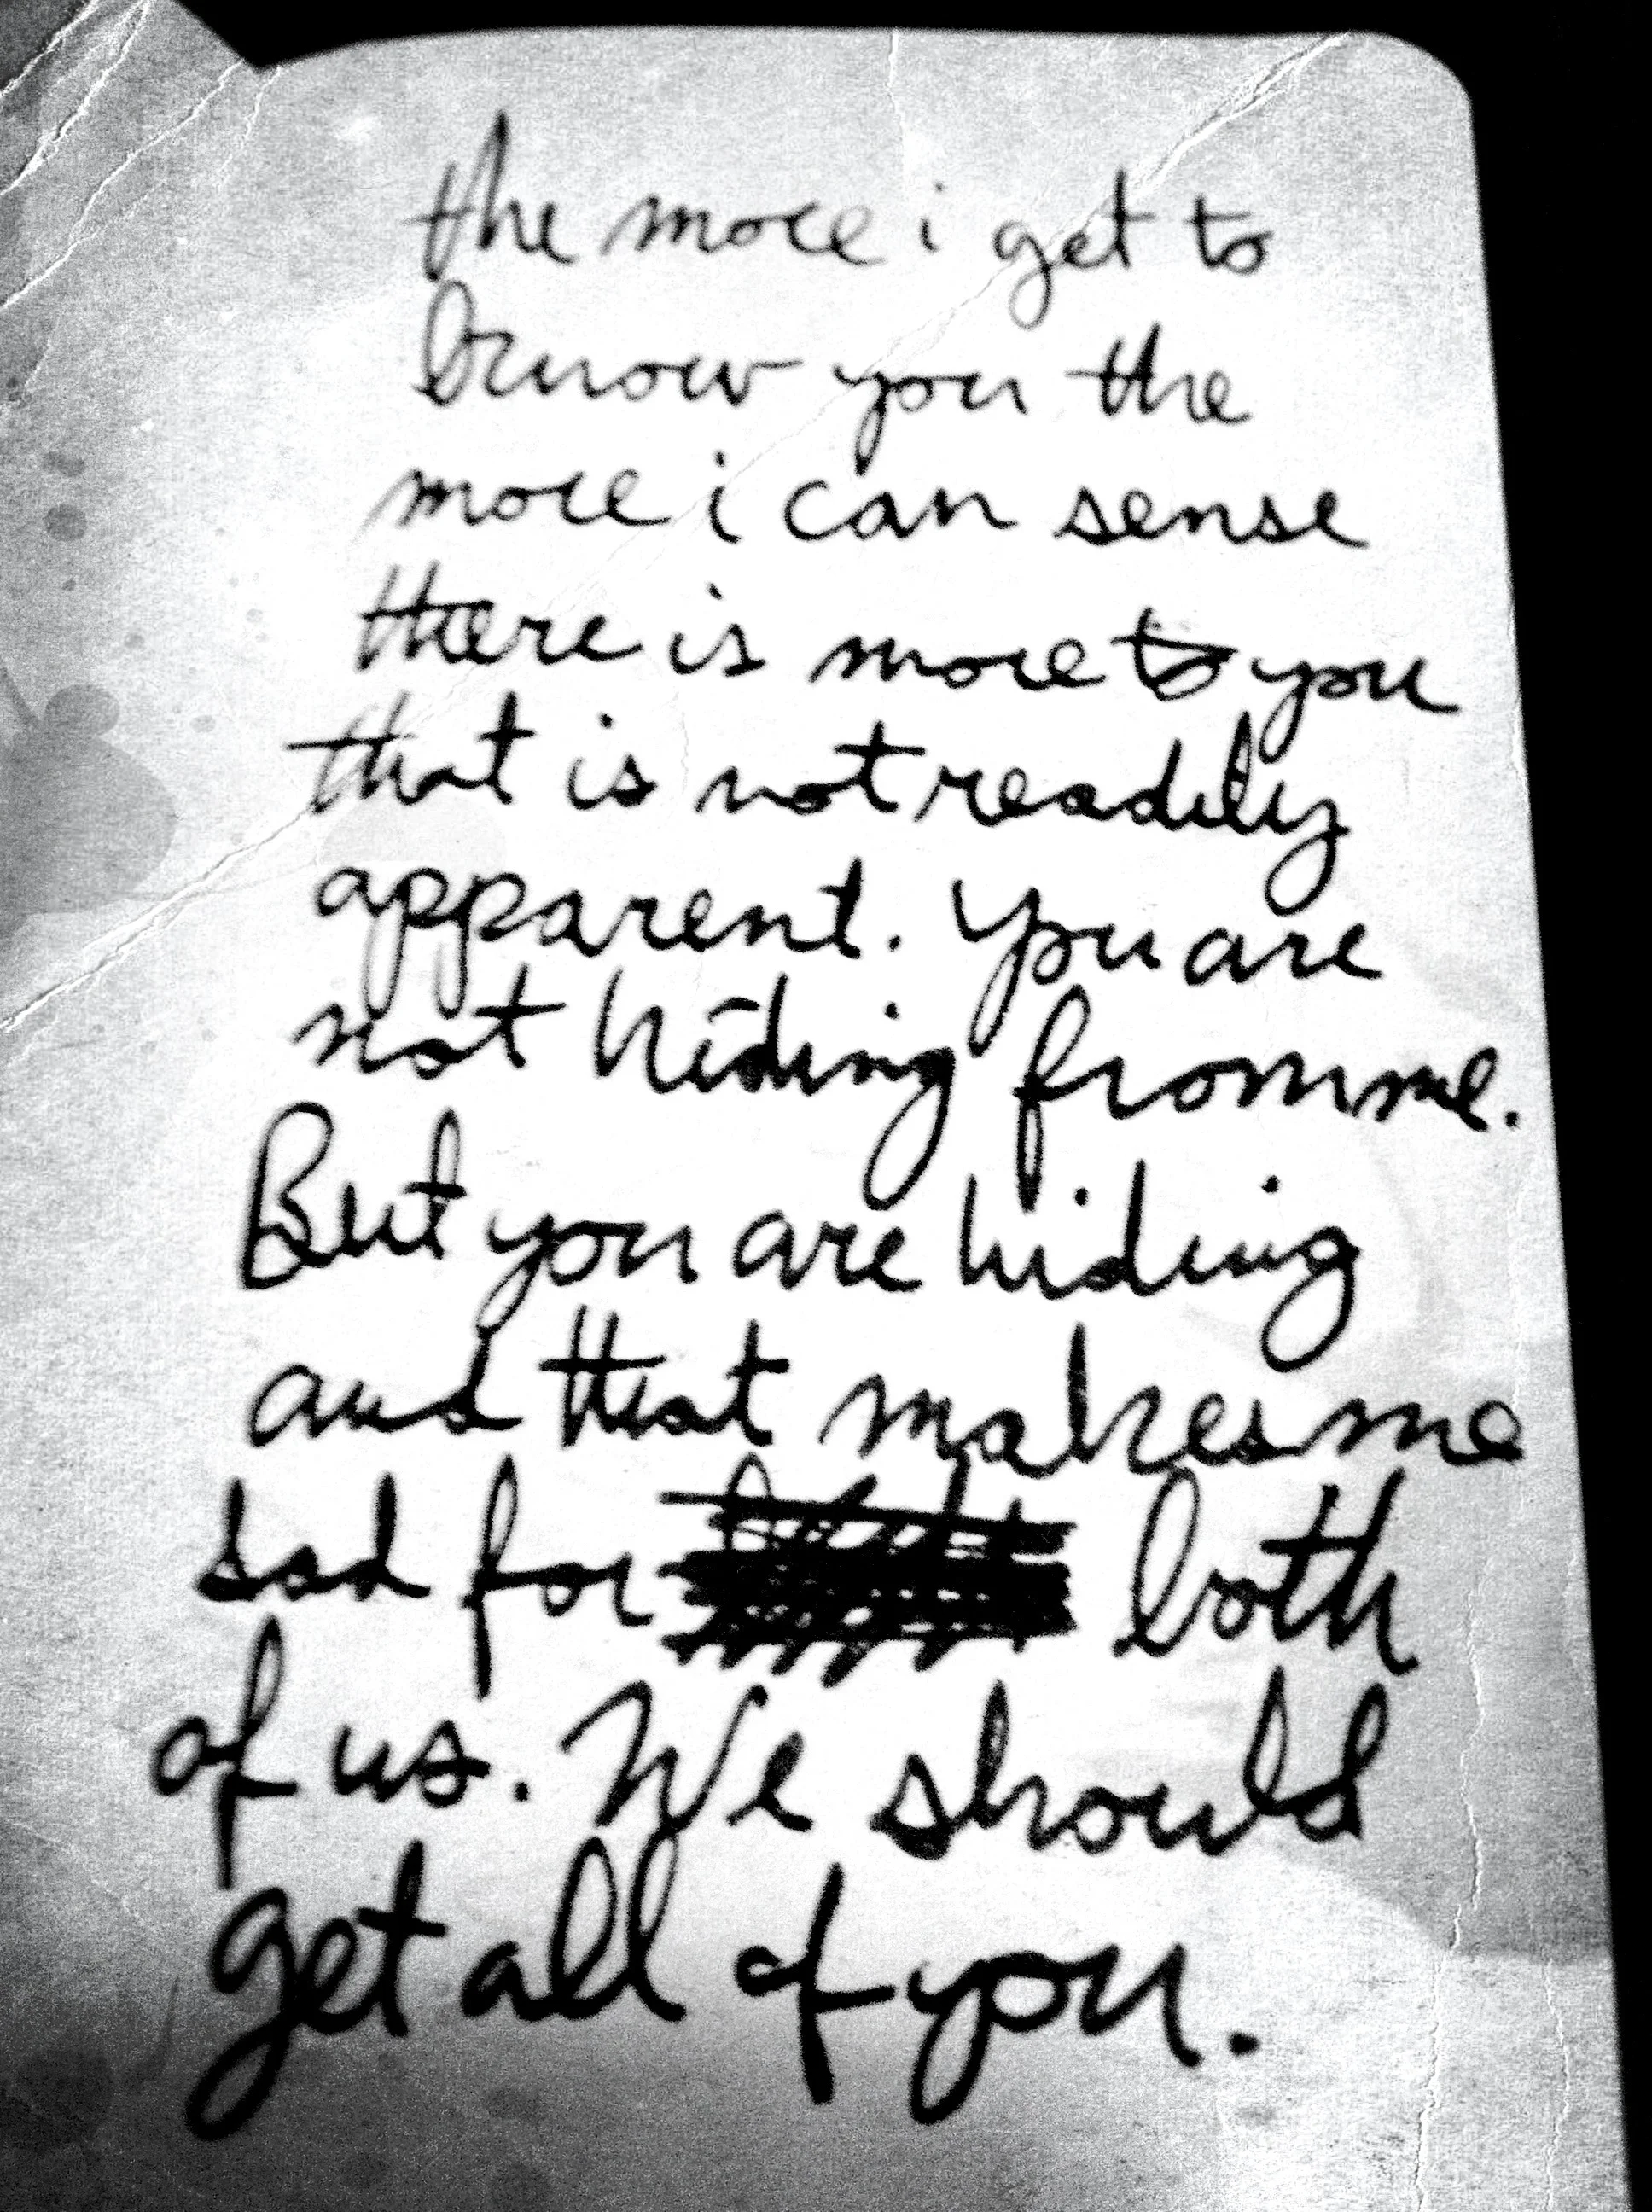 the more i get to
know you the
more i can sense
there is more to you
that is not readily
apparent. You are
not hiding from me.
But you are hiding
and that makes me
sad for both
of us. We should
get all of you.